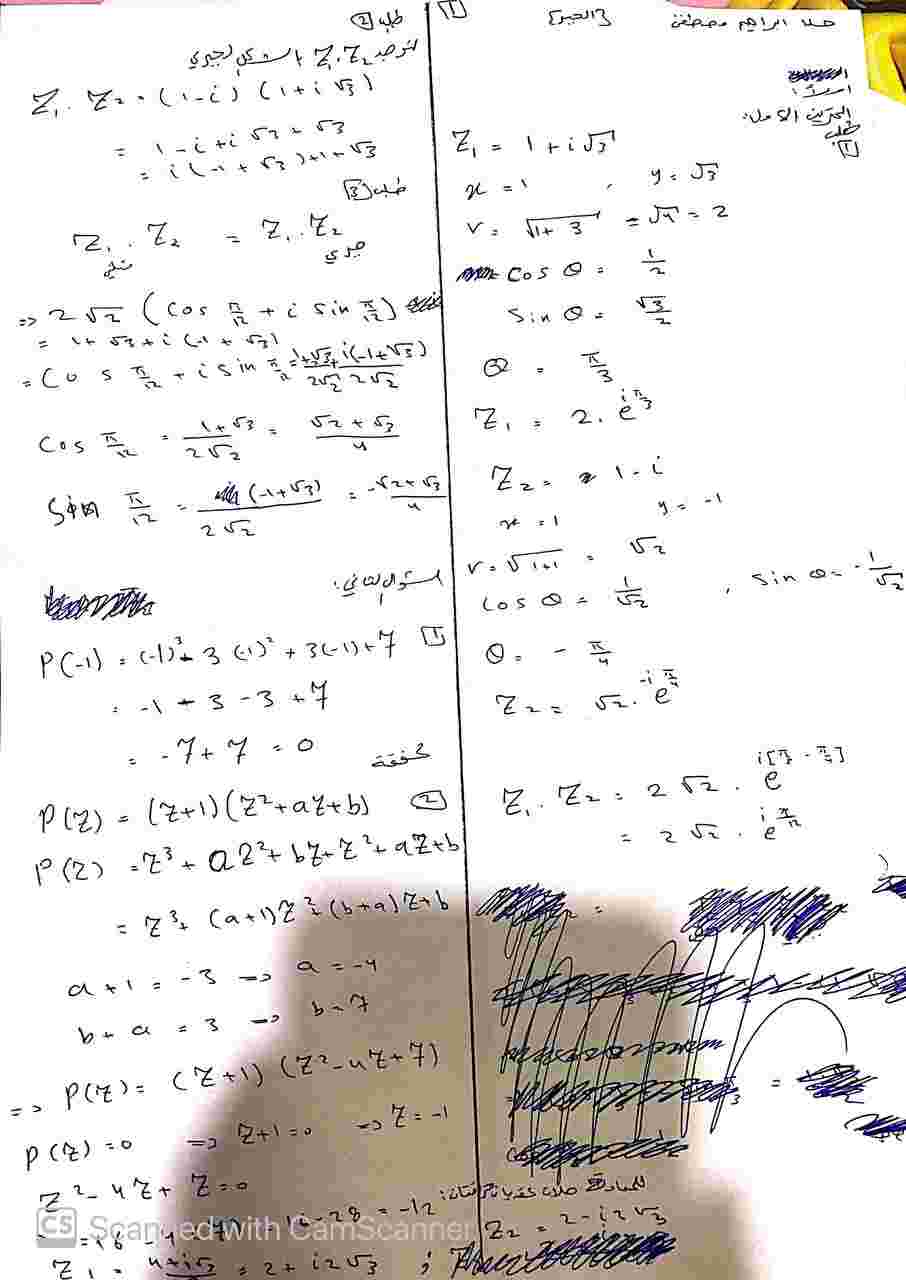 حلا ابراهيم مصطفى [الجبر]
التمرين الاول:
طلب
[1]
Z₁ = 1 + i√3
x = 1 , y = √3
r = √(1+3) = √4 = 2
cos θ = 1/2
sin θ = √3/2
θ = π/3
Z₁ = 2 . e^(iπ/3)
Z₂ = 1 - i
x = 1 y = -1
r = √(1+1) = √2
cos θ = 1/√2 , sin θ = -1/√2
θ = - π/4
Z₂ = √2 . e^(-iπ/4)
Z₁ . Z₂ = 2√2 . e^(i[π/3 - π/4])
= 2√2 . e^(iπ/12)
[1]
طلب [2]
Z₁.Z₂ بالشكل الجبري
Z₁ . Z₂ = (1-i) (1+i√3)
= 1 - i + i√3 + √3
= i(-1 + √3) + 1 + √3
طلب [3]
Z₁ . Z₂ = Z₁ . Z₂
مثلثي جبري
=> 2√2 (cos π/12 + i sin π/12)
= 1 + √3 + i(-1 + √3)
= Cos π/12 + i sin π/12 = (1+√3)/(2√2) + i(-1+√3)/(2√2)
Cos π/12 = (1+√3)/(2√2) = (√2+√3)/4
Sin π/12 = (-1+√3)/(2√2) = (-√2+√3)/4
السؤال الثاني:
[1]
P(-1) = (-1)³ - 3(-1)² + 3(-1) + 7
= -1 - 3 - 3 + 7
= -7 + 7 = 0
محققة
P(Z) = (Z+1)(Z²+aZ+b) (2)
P(Z) = Z³ + aZ² + bZ + Z² + aZ + b
= Z³ + (a+1)Z² + (b+a)Z + b
a + 1 = -3 => a = -4
b + a = 3 => b = 7
=> P(Z) = (Z+1)(Z²-4Z+7)
P(Z) = 0 => Z+1 = 0 => Z = -1
Z² - 4Z + 7 = 0
-28 = -12
Z₁ = = 2 + i2√3 ;
Z₂ = 2 - i2√3
CS Scanned with CamScanner